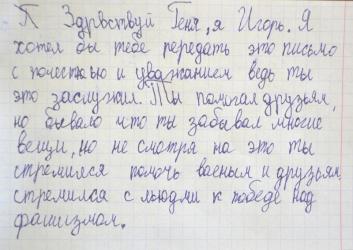 П Здрвствуй Геня, я Игорь. Я
хотел бы тебе передать это письмо
с почестью и уважанием ведь ты
это заслужил. Ты помагал друзьям,
но бывало что ты забывал многие
вещи, но не смотря на это ты
стремился помочь военым и друзьям,
стремился с людми к победе над
фашизмом.